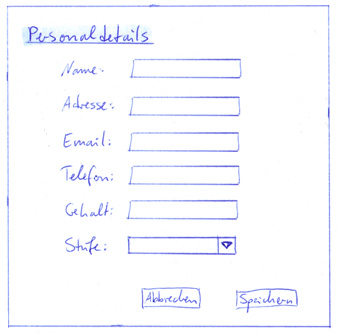 Personaldetails
Name:
Adresse:
Email:
Telefon:
Gehalt:
Stufe:
Abbrechen Speichern